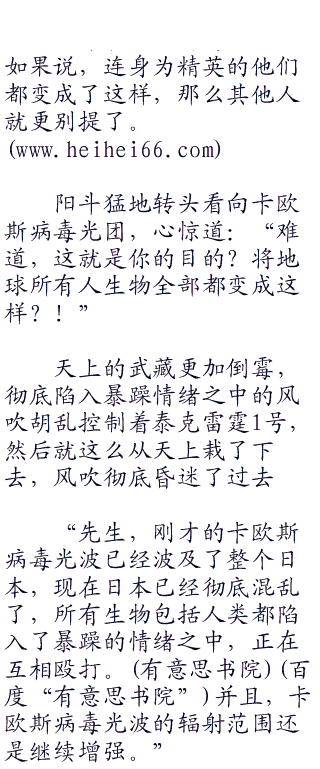 如果说，连身为精英的他们
都变成了这样，那么其他人
就更别提了。
(www.heihei66.com)
阳斗猛地转头看向卡欧
斯病毒光团，心惊道：“难
道，这就是你的目的？将地
球所有人生物全部都变成这
样？！”
天上的武藏更加倒霉，
彻底陷入暴躁情绪之中的风
吹胡乱控制着泰克雷霆1号，
然后就这么从天上栽了下
去，风吹彻底昏迷了过去
“先生，刚才的卡欧斯
病毒光波已经波及了整个日
本，现在日本已经彻底混乱
了，所有生物包括人类都陷
入了暴躁的情绪之中，正在
互相殴打。(有意思书院)(百
度“有意思书院”)并且，卡
欧斯病毒光波的辐射范围还
是继续增强。”